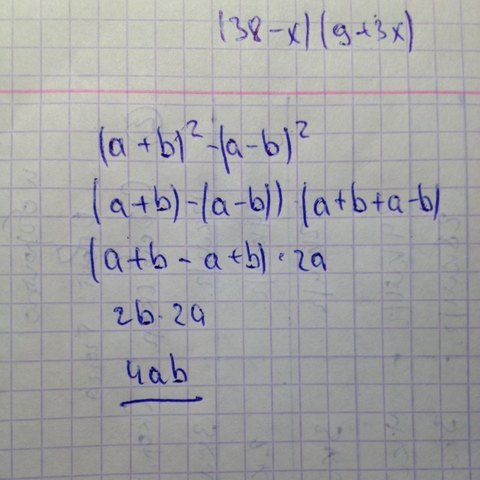 (38-x)(9+3x)
(a+b)²-(a-b)²
(a+b)-(a-b))·(a+b+a-b)
(a+b-a+b)·2a
2b·2a
4ab